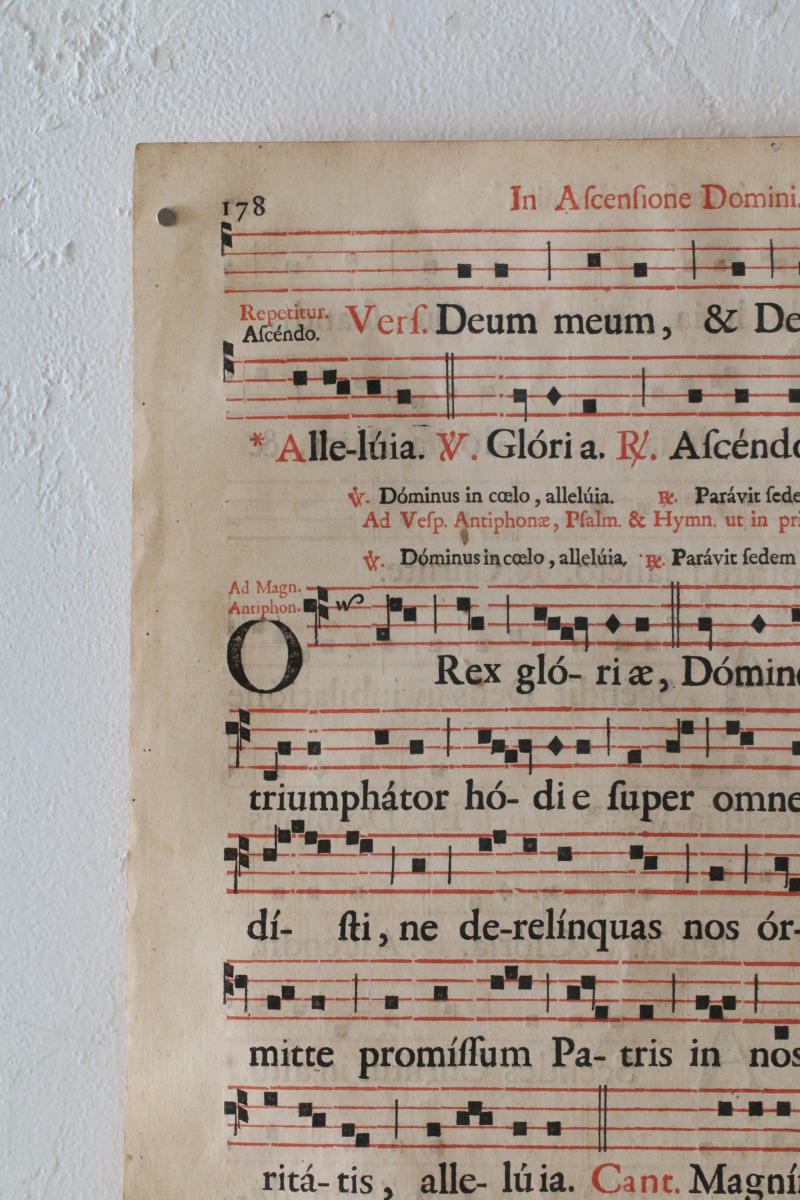 178 In Aſcenſione Domini.
Repetitur. Verſ. Deum meum, & De
Aſcéndo.
* Alle-lúia. ℣. Glória. ℟. Aſcéndo
℣. Dóminus in cœlo, allelúia. ℟. Parávit ſede
Ad Veſp. Antiphonæ, Pſalm. & Hymn. ut in pri
℣. Dóminus in cœlo, allelúia. ℟. Parávit ſedem
Ad Magn.
Antiphon.
O Rex gló- riæ, Dómine
triumphátor hó- die ſuper omne
dí- ſti, ne de-relínquas nos ór-
mitte promíſſum Pa- tris in nos
ritá- tis, alle- lúia. Cant. Magní